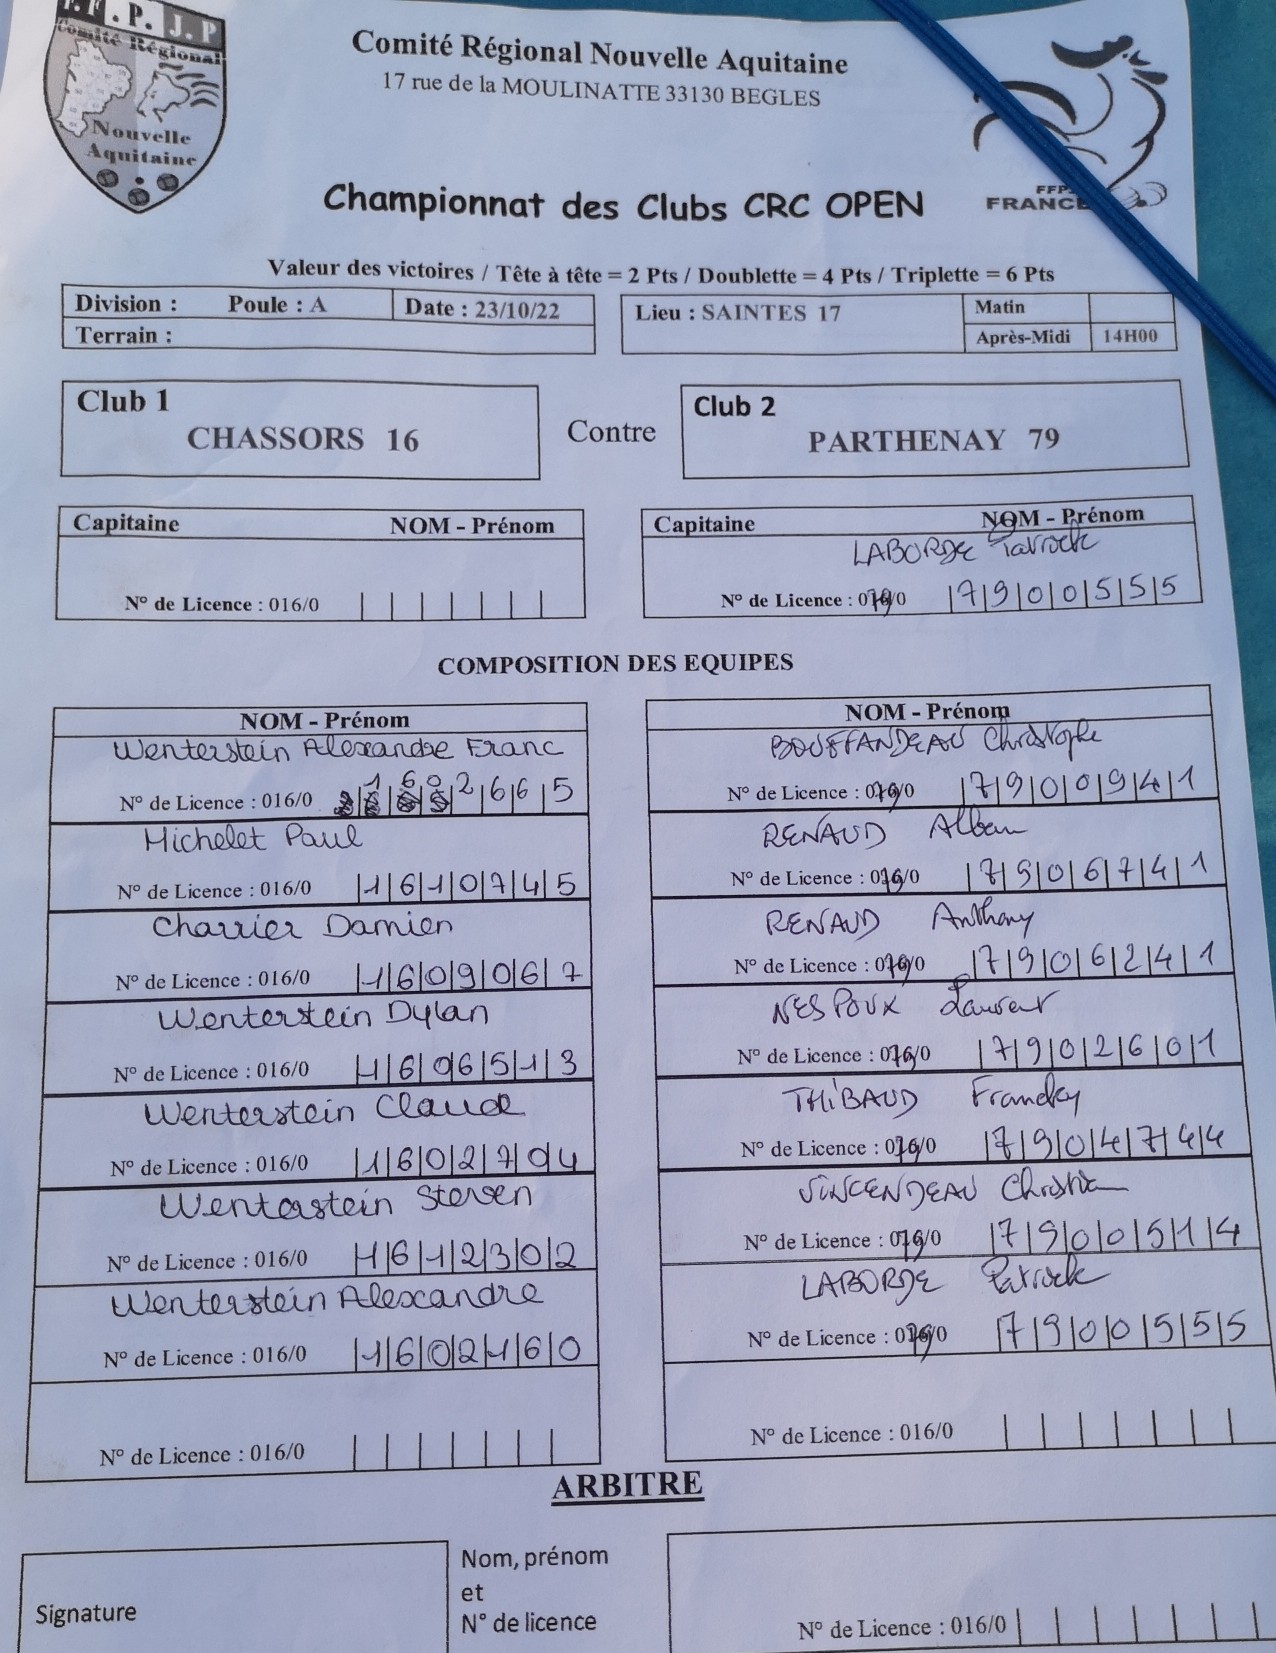 F.F.P.J.P
Comité Régional
Nouvelle
Aquitaine
Comité Régional Nouvelle Aquitaine
17 rue de la MOULINATTE 33130 BEGLES
FRANCE
Championnat des Clubs CRC OPEN
Valeur des victoires / Tête à tête = 2 Pts / Doublette = 4 Pts / Triplette = 6 Pts
Division : Poule : A Date : 23/10/22
Terrain :
Lieu : SAINTES 17
Matin
Après-Midi 14H00
Club 1
CHASSORS 16
Contre
Club 2
PARTHENAY 79
Capitaine NOM - Prénom
N° de Licence : 016/0
Capitaine NOM - Prénom
LABORDE Patrick
N° de Licence : 079/0 7900555
COMPOSITION DES EQUIPES
NOM - Prénom
Wenterstein Alexandre Franc
N° de Licence : 016/0 1602665
Michelet Paul
N° de Licence : 016/0 1610745
Charrier Damien
N° de Licence : 016/0 1609067
Wenterstein Dylan
N° de Licence : 016/0 1606513
Wenterstein Claude
N° de Licence : 016/0 1602704
Wenterstein Steven
N° de Licence : 016/0 1612302
Wenterstein Alexandre
N° de Licence : 016/0 1602160
N° de Licence : 016/0
NOM - Prénom
BOUFFANDEAU Christophe
N° de Licence : 079/0 7900941
RENAUD Alban
N° de Licence : 079/0 7906741
RENAUD Anthony
N° de Licence : 079/0 7906241
NESPOUX Laurent
N° de Licence : 079/0 7902601
THIBAUD Francky
N° de Licence : 079/0 7904744
VINCENDEAU Christian
N° de Licence : 079/0 7900514
LABORDE Patrick
N° de Licence : 079/0 7900555
N° de Licence : 016/0
ARBITRE
Signature
Nom, prénom
et
N° de licence
N° de Licence : 016/0